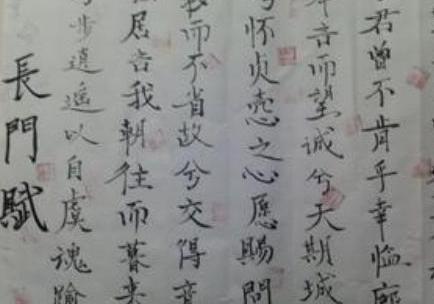 長門賦
步逍遥以自虞魂踰
居言我朝往而暮来
而不省故兮交得意
怀贞悫之心愿賜問
言而望诚兮天期城
君曾不肯乎幸临廓